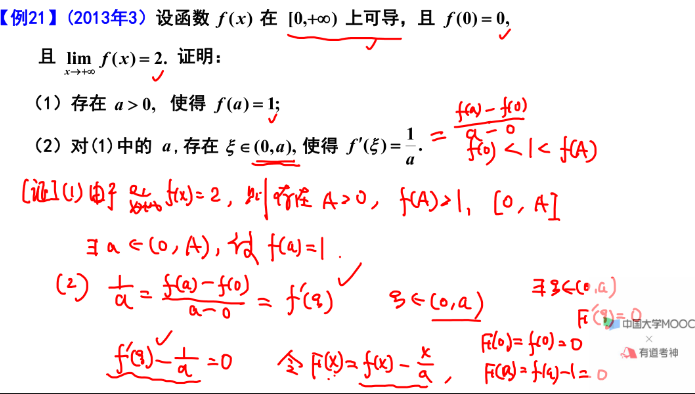 【例21】(2013年3) 设函数 f(x) 在 [0,+∞) 上可导，且 f(0)=0,
且 lim x→+∞ f(x)=2. 证明：
（1）存在 a>0, 使得 f(a)=1;
（2）对(1)中的 a,存在 ξ∈(0,a), 使得 f′(ξ)=1/a. = (f(a)-f(0))/(a-0)
f(0)<1<f(A)
[证](1) 由于 f(x)=2, 则存在 A>0, f(A)>1, [0, A]
∃ a∈(0, A), 使 f(a)=1.
(2) 1/a = (f(a)-f(0))/(a-0) = f′(ξ) ξ∈(0,a)
∃ξ∈(0,a)
F′(ξ)=0
中国大学MOOC
×
有道考神
f′(ξ)-1/a=0 令 F(x)=f(x)-x/a,
F(0)=f(0)=0
F(a)=f(a)-1=0